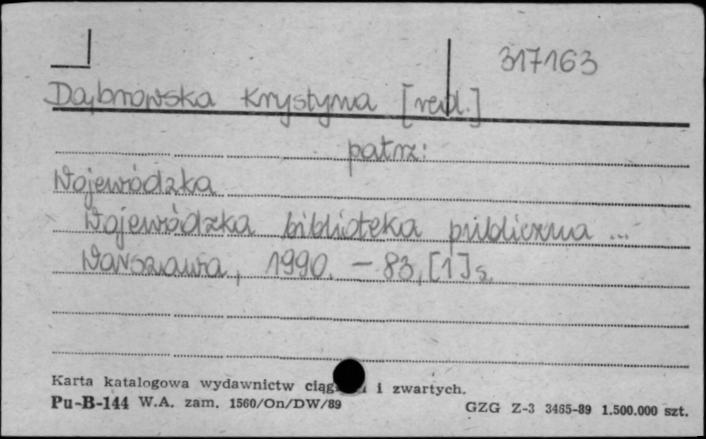 317163
Dąbrowska Krystyna [red.]
patrz:
Wojewódzka
Wojewódzka biblioteka publiczna ...
Warszawa, 1990. - 83, [1] s.
Karta katalogowa wydawnictw i zwartych.
Pu-B-144 W.A. zam. 1560/On/DW/89
GZG Z-3 3465-89 1.500.000 szt.